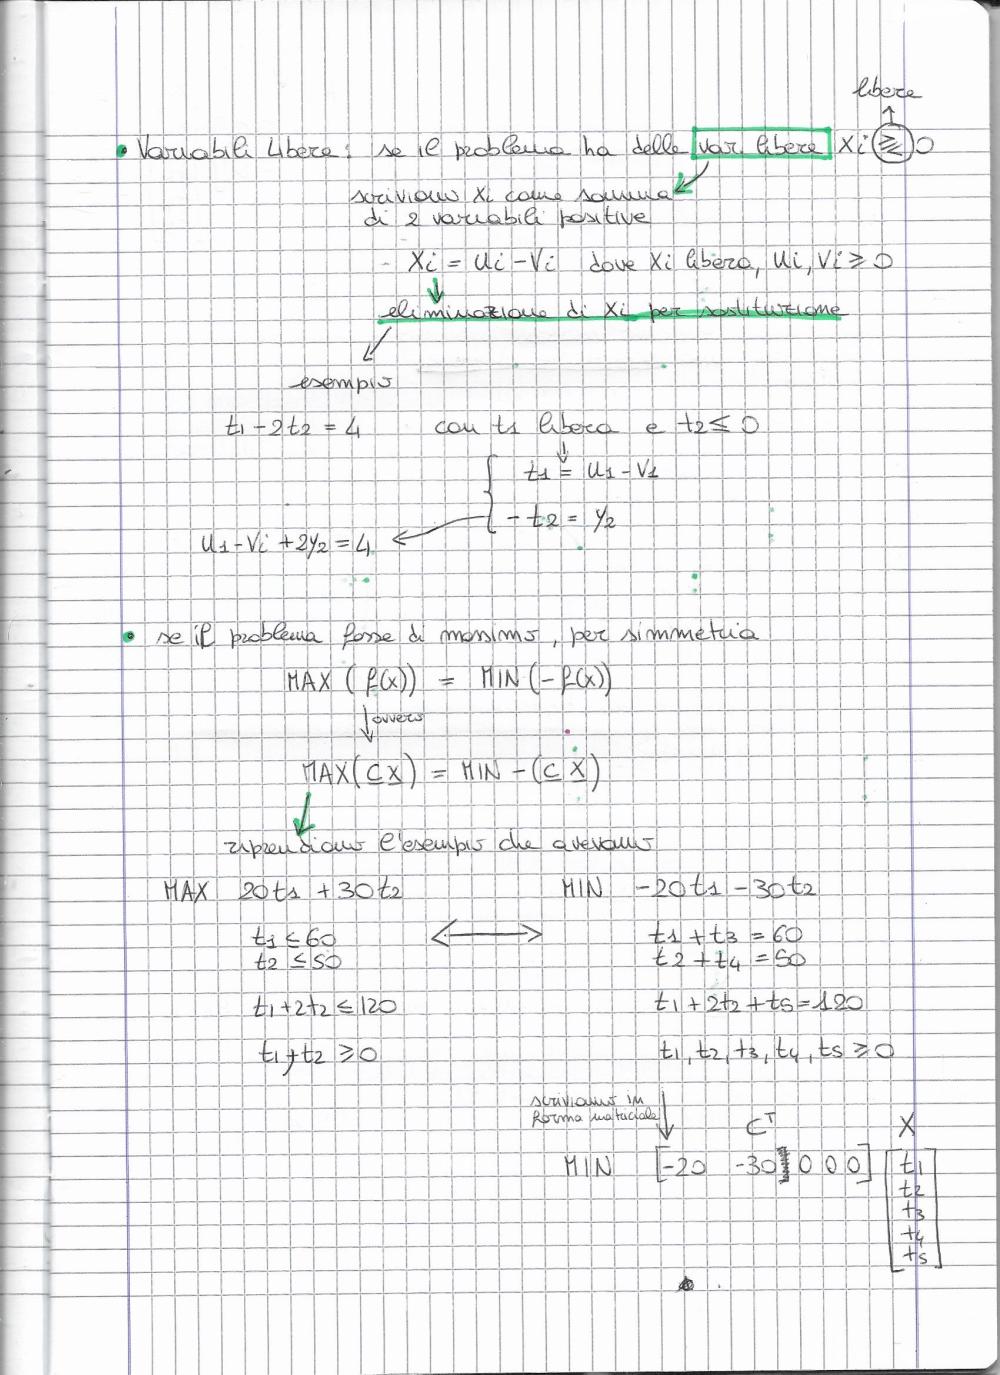 libere
↑
• Variabili Libere: se il problema ha delle var. libere Xi ⩾ 0
scriviamo Xi come somma
di 2 variabili positive
- Xi = Ui - Vi dove Xi libera, Ui, Vi ≥ 0
eliminazione di Xi per sostituzione
esempio
t1 - 2t2 = 4 con t1 libera e t2 ≤ 0
t1 = U1 - V1
- t2 = Y2
U1 - Vi + 2Y2 = 4
• se il problema fosse di massimo, per simmetria
MAX (f(x)) = MIN (-f(x))
↓ ovvero
MAX(C X) = MIN -(C X)
riprendiamo l'esempio che avevamo
MAX 20t1 + 30t2 MIN -20t1 - 30t2
t1 ≤ 60 ⟷ t1 + t3 = 60
t2 ≤ 50 t2 + t4 = 50
t1 + 2t2 ≤ 120 t1 + 2t2 + t5 = 120
t1, t2 ≥ 0 t1, t2, t3, t4, t5 ≥ 0
scriviamo in
forma matriciale
C^T X
MIN [-20 -30 0 0 0] [t1
t2
t3
t4
t5]